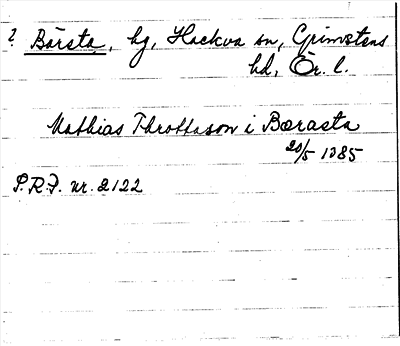 ? Bärsta, hg, Hackva sn, Grimstens
hd, Ör. l.
Mathias Throttason i Bærasta
20/5 1385
S.R.P. nr. 2122